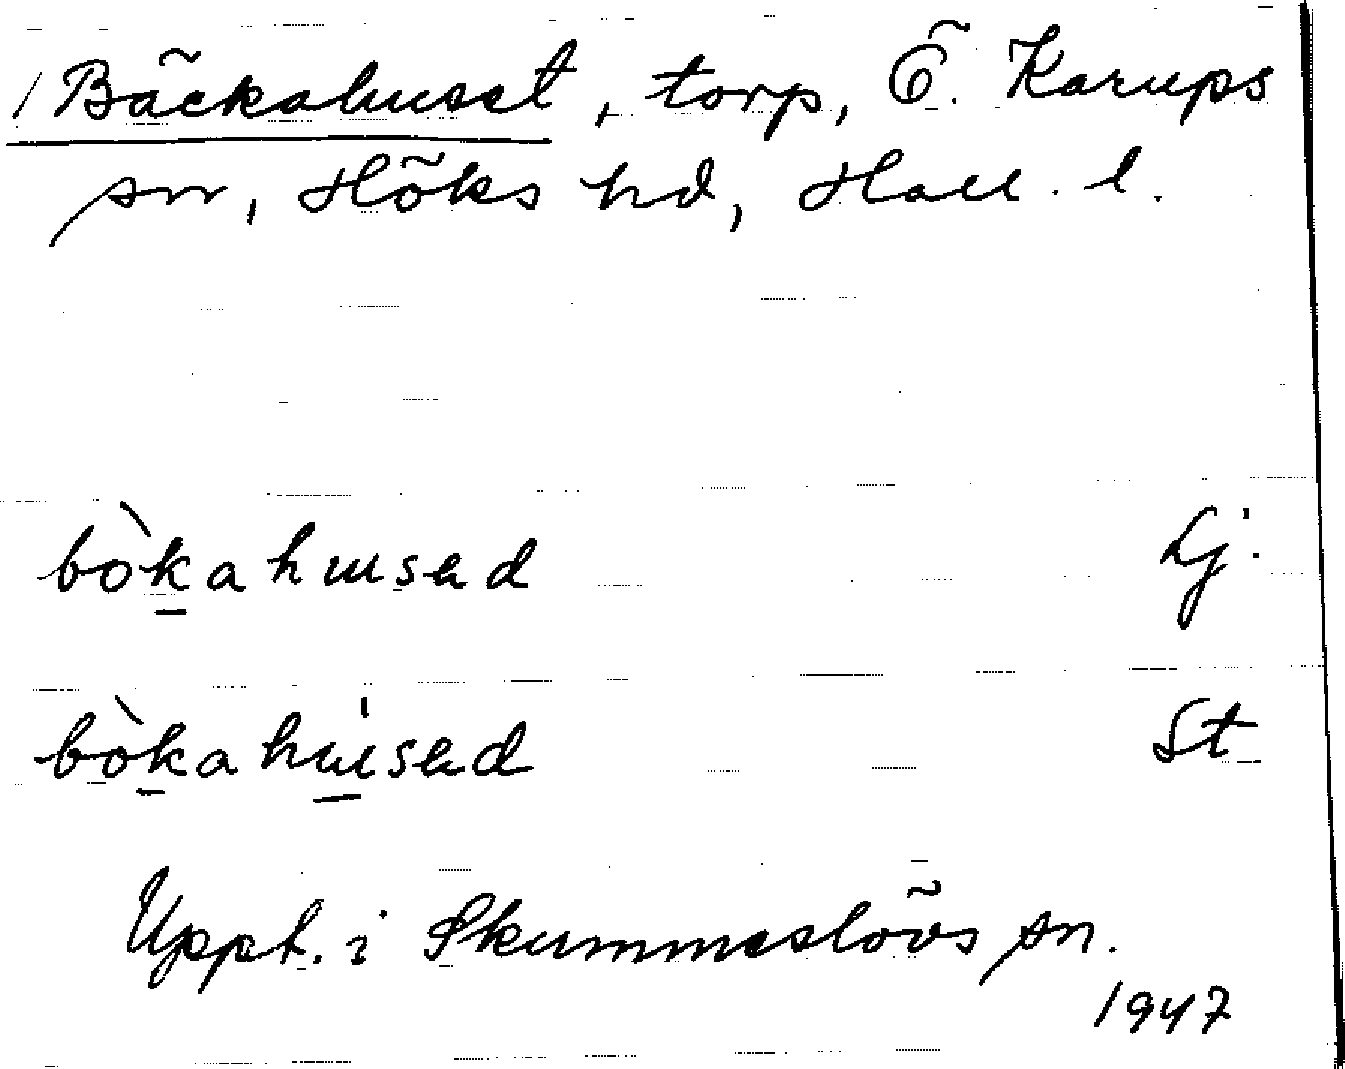 / Bäckahuset, torp, Ö. Karups
sn, Höks hd, Hall. l.
bòkahusad Lj.
bòkahusad St
Uppt. i Skummeslövs sn.
1947